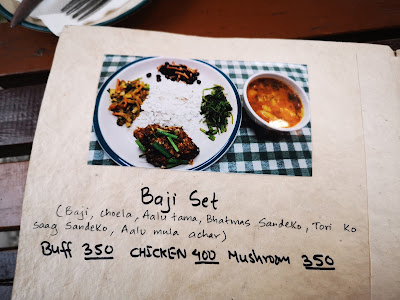 Baji Set
(Baji, choela, Aalu tama, Bhatmas Sandeko, Tori ko
saag Sandeko, Aalu mula achar)
Buff 350 CHICKEN 400 Mushroom 350